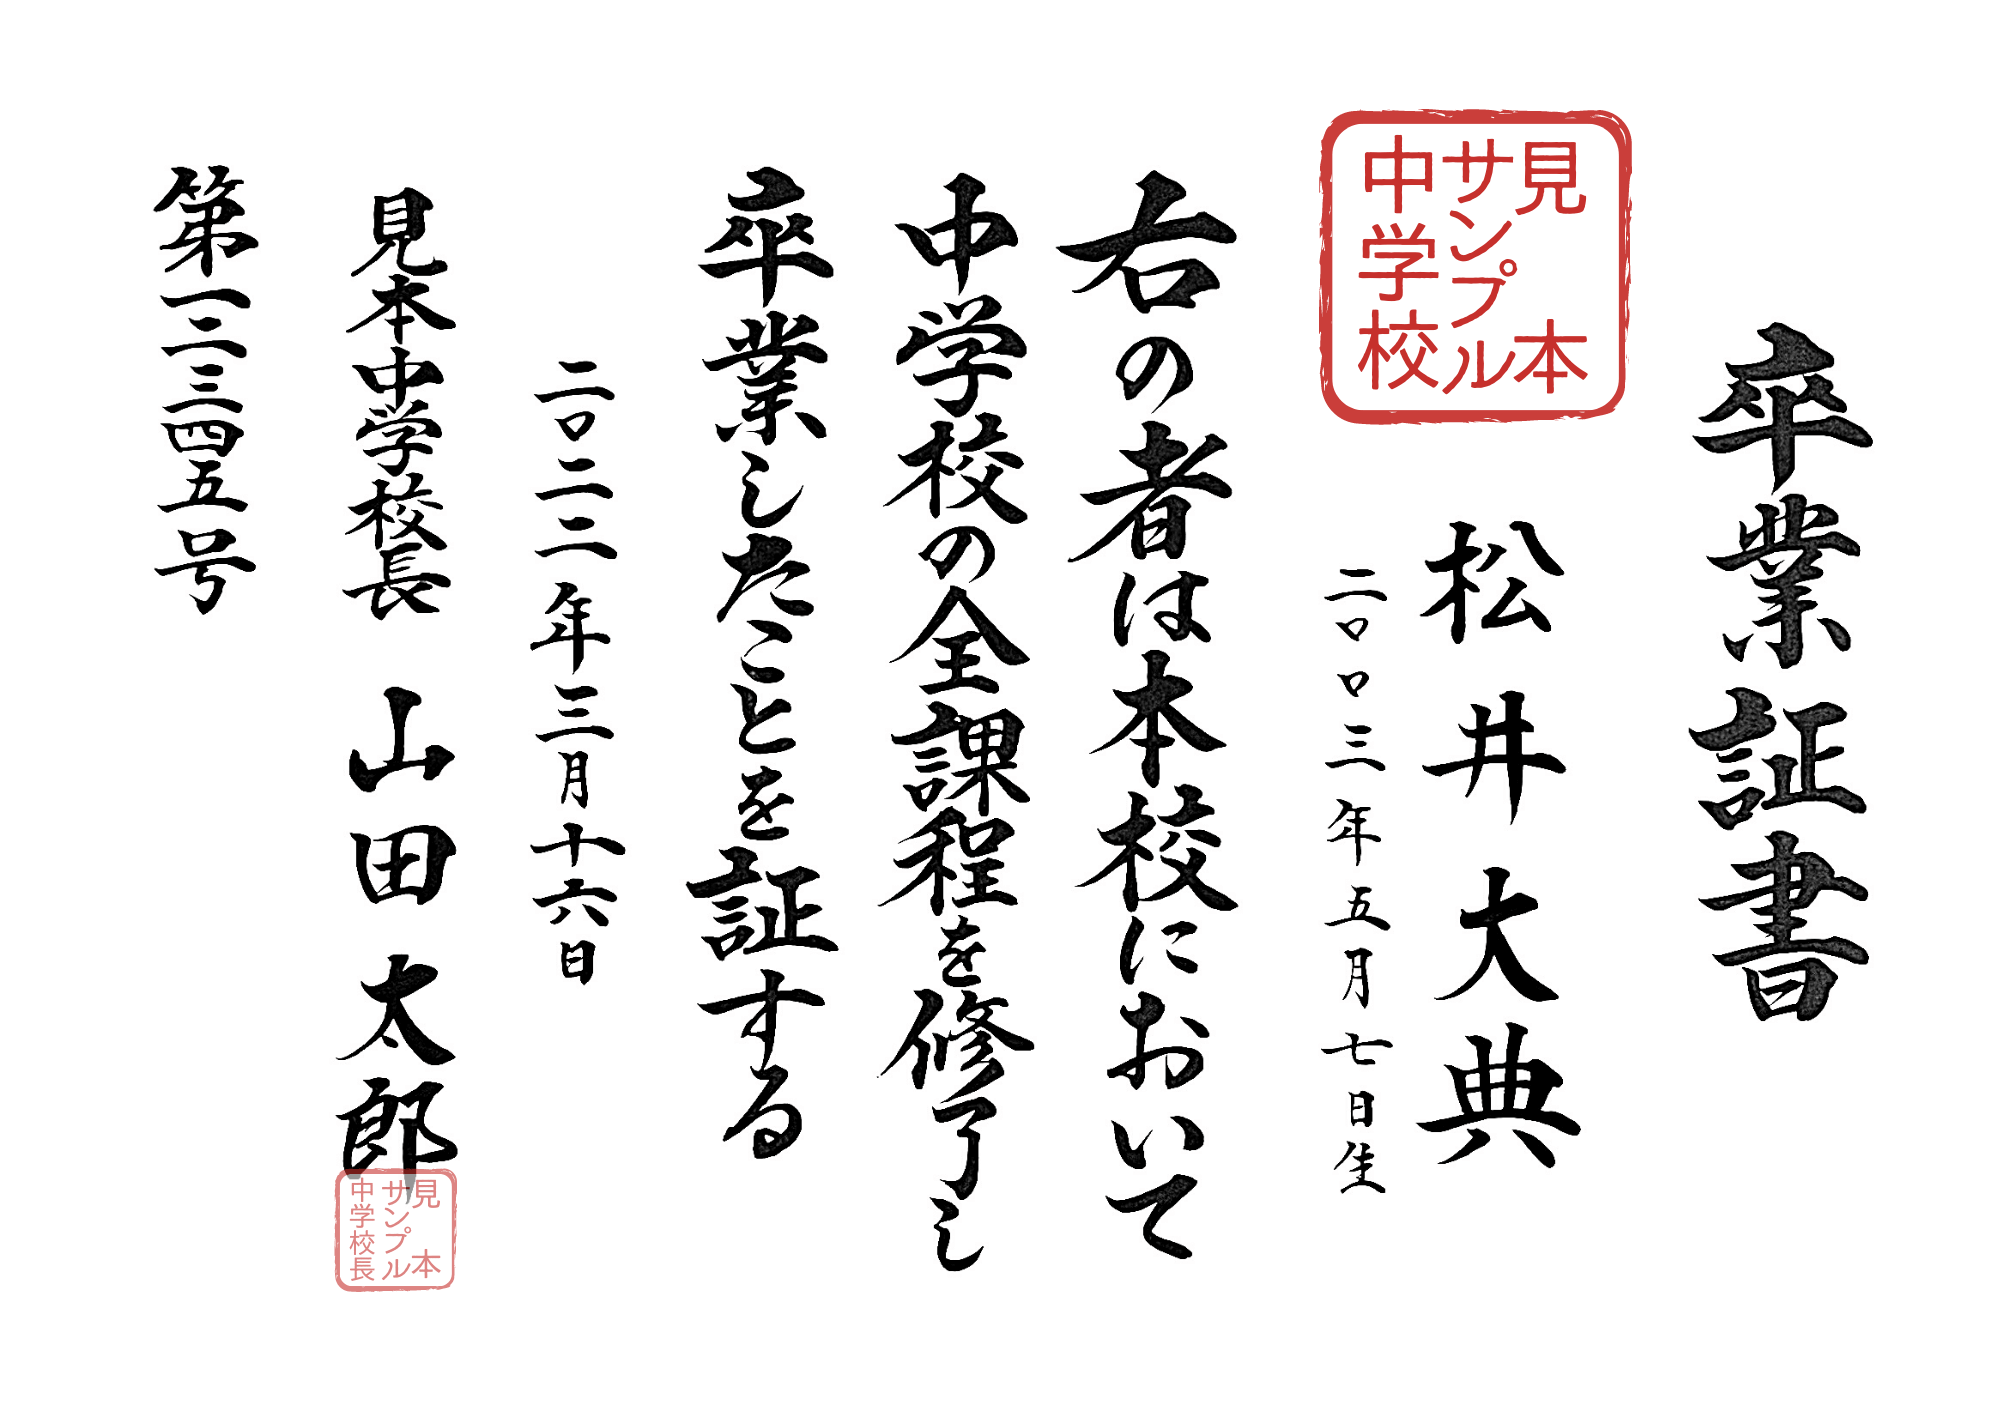 卒業証書
見本
サンプル
中学校
松井大典
二〇〇三年五月七日生
右の者は本校において
中学校の全課程を修了し
卒業したことを証する
二〇二二年三月十六日
見本中学校長 山田太郎
見本
サンプル
中学校長
第一二三四五号